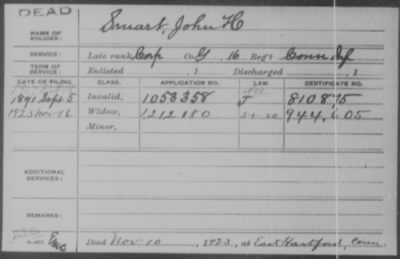 DEAD
NAME OF SOLDIER: Smart, John H
SERVICE: Late rank, Corp Co. G, 16 Reg't Conn Inf
TERM OF SERVICE: Enlisted , 1 Discharged , 1
DATE OF FILING. CLASS. APPLICATION NO. LAW. CERTIFICATE NO.
1891 Sept 5 Invalid, 1053358 J 810815
1923 Nov 16 Widow, 1212180 5-1-20 944,605
Minor,
ADDITIONAL SERVICES:
REMARKS:
Died Nov 10, 1923, at East Hartford, Conn